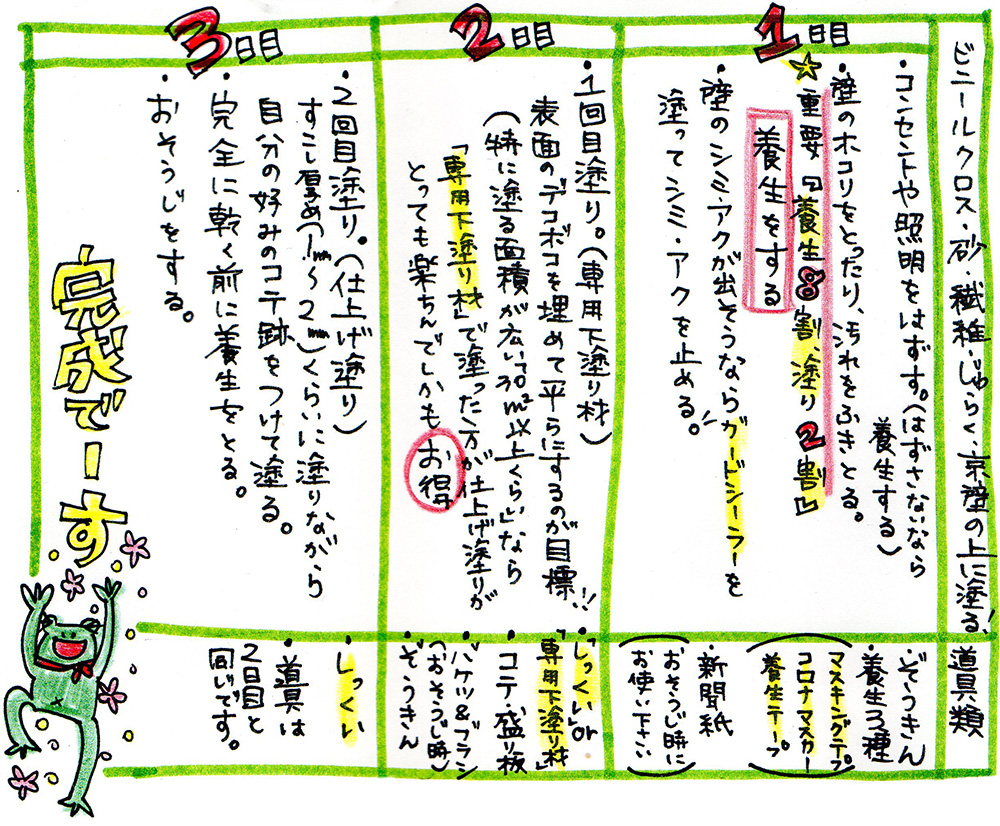 ビニールクロス・砂・繊維・じゅらく、京壁の上に塗る!
道具類
1日目
・コンセントや照明をはずす。(はずさないなら
養生する)
・壁のホコリをとったり、汚れをふきとる。
☆重要『養生8割 塗り2割』
養生をする
・壁のシミ・アクが出そうならガードシーラーを
塗ってシミ・アクを止める。
・ぞうきん
・養生3種
(マスキングテープ
コロナマスカー
養生テープ)
・新聞紙
(おそうじ時に
お使い下さい)
2日目
・1回目塗り。(専用下塗り材)
表面のデコボコを埋めて平らにするのが目標!!
(特に塗る面積が広い「30m²以上くらい」なら
「専用下塗り材」で塗った方が仕上げ塗りが
とっても楽ちんでしかもお得
・「しっくい」or
「専用下塗り材」
・コテ・盛り板
・バケツ&ブラシ
(おそうじ時)
・ぞうきん
3日目
・2回目塗り。(仕上げ塗り)
すこし厚め(1mm~2mm)くらいに塗りながら
自分の好みのコテ跡をつけて塗る。
・完全に乾く前に養生をとる。
・おそうじをする。
・しっくい
・道具は
2日目と
同じです。
完成でーす